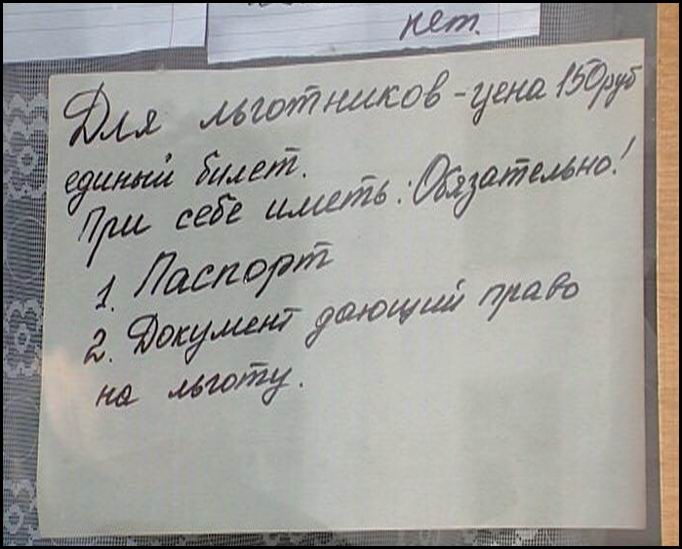 нет.
Для льготников - цена 150 руб
единый билет.
При себе иметь: Обязательно!
1. Паспорт
2. Документ дающий право
на льготу.